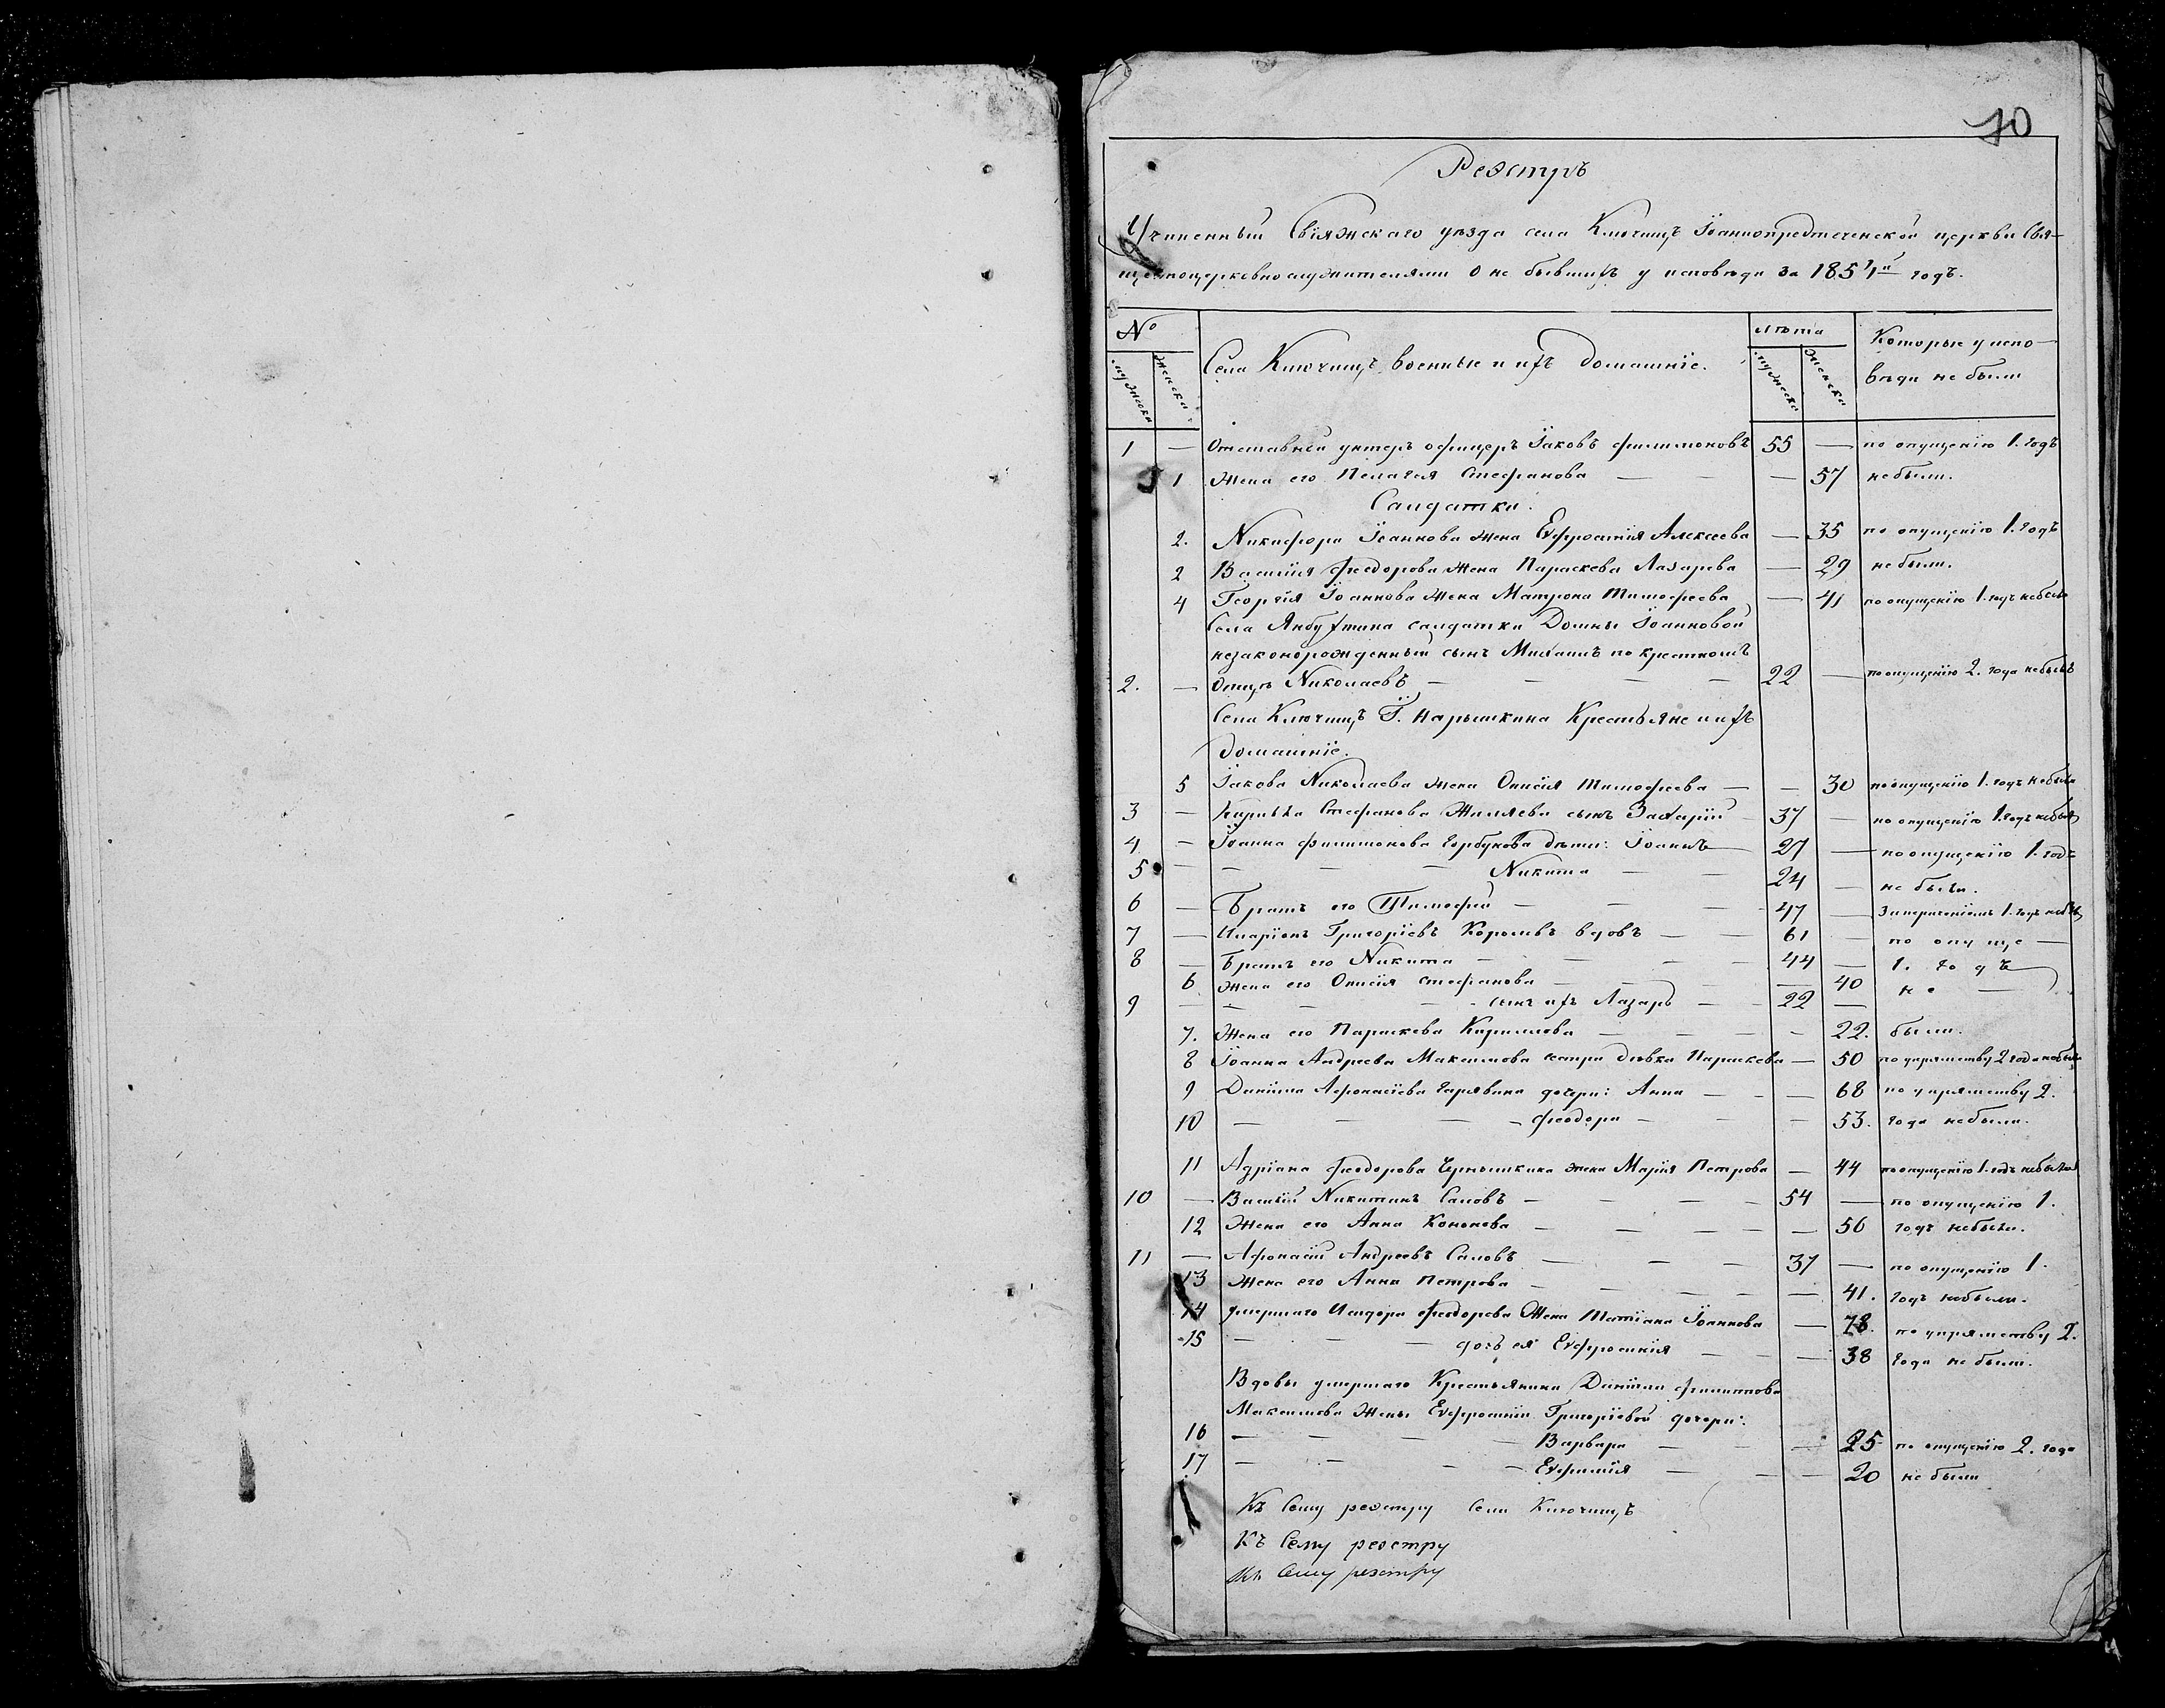 10
Реэстръ
Учиненный Свіяжскаго уѣзда села Ключищъ Іоаннопредтеченской церкви Свя-
щенноцерковнослужителями о не бывшихъ у исповѣди за 1857й годъ.
№ Села Ключищъ военные и ихъ домашніе. Лѣта Которые у испо-
мужеска женска мужеска женска вѣди не были
1 — Отставной унтеръ офицеръ Іаковъ Филимоновъ 55 — по опущенію 1. годъ
1 Жена его Пелагея Стефанова — — 57 небыли.
Салдатки.
2. Никифора Іоаннова жена Евфросинія Алексеева — 35 по опущенію 1. годъ
2 Василія Феодорова жена Параскева Лазарева — 29 не были.
4 Георгія Іоаннова жена Матрона Тимофеева — 41 по опущенію 1. годъ небыла
Села Янбухтина салдатки Домны Іоанновой
незаконорожденный сынъ Михаилъ по крестномъ
2. — Отцѣ Николаевъ — — — — 22 — по опущенію 2. года небылъ
Села Ключищъ Г. Нарышкина Крестьяне и ихъ
домашніе.
5 Іакова Николаева жена Онисія Тимофеева — — 30 по опущенію 1. годъ небыла
3 — Кирилла Стефанова Жиляева сынъ Захарій — 37 — по опущенію 1. годъ небылъ
4 — Іоанна Филимонова Горбунова дѣти: Іоаннъ — 27 — по опущенію 1. годъ
5 — — — — Никита — — 24 — не были.
6 — Братъ его Тимофей — — — 47 — 1. годъ небылъ
7 — Иларіонъ Григоріевъ вдовъ — — 61 — по опуще —
8 — Братъ его Никита — — — — 44 — 1. годъ
6 Жена его Онисія Стефанова — — — — 40 не —
9 — — — — сынъ ихъ Лазарь — — 22 —
7. Жена его Параскева Кириллова — — — 22. были.
8 Іоанна Андреева Максимова сестра дѣвка Параскева — 50 по упрямству 2 года небыла
9 Даніила Афонасіева дочери: Анна — — — 68 по упрямству 2.
10 — — — — Феодора — — 53. года небыли.
11 Адріана Феодорова Чернышкина жена Марія Петрова — 44 по опущенію 1. годъ небыла
10 — Василій Никитинъ Саловъ — — — — 54 — по опущенію 1.
12 Жена его Анна Кононова — — — — 56 годъ небыли.
11 — Афонасій Андреевъ Саловъ — — — 37 — по опущенію 1.
13 Жена его Анна Петрова — — — — 41. годъ небыли.
14 умершаго Исидора Феодорова Жена Татіана Іоаннова — 78. по упрямству 2.
15 — — — дочь ея Евфросинія — — — 38 года не были.
Вдовы умершаго Крестьянина Даніила Филиппова
Максимова Жены Евфросиніи Григоріевой дочери:
16 — — — — Варвара — — — 25 по опущенію 2. года
17 — — — — Евфимія — — — 20 не были
Къ Сему реэстру Села Ключищъ
Къ Сему реэстру
Къ Сему реэстру